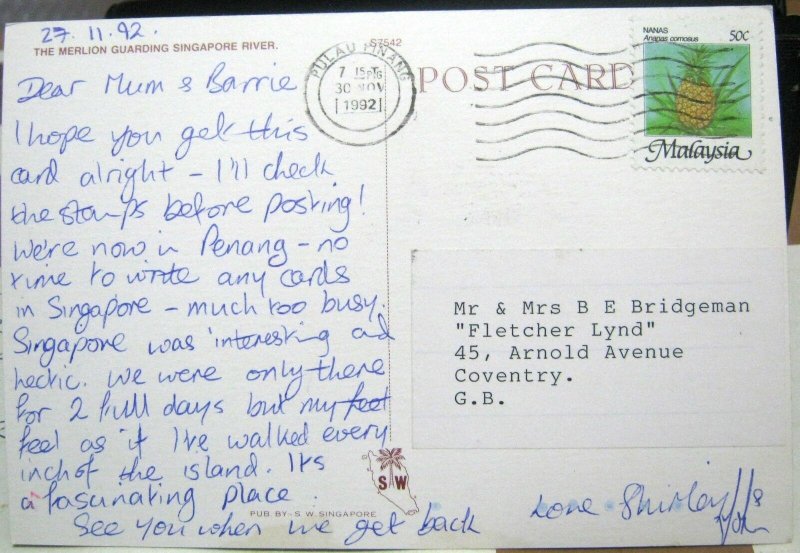 27.11.92.
THE MERLION GUARDING SINGAPORE RIVER.
S7542
Dear Mum & Barrie
I hope you get this
card alright - I'll check
the stamps before posting!
We're now in Penang - no
time to write any cards
in Singapore - much too busy.
Singapore was interesting and
hectic. We were only there
for 2 full days but my feet
feel as if I've walked every
inch of the island. It's
a fascinating place.
See you when we get back
Love Shirley
PULAU PINANG
30 NOV
1992
POST CARD
NANAS
Ananas comosus
50¢
Malaysia
Mr & Mrs B E Bridgeman
"Fletcher Lynd"
45, Arnold Avenue
Coventry.
G.B.
S W
PUB. BY - S. W. SINGAPORE